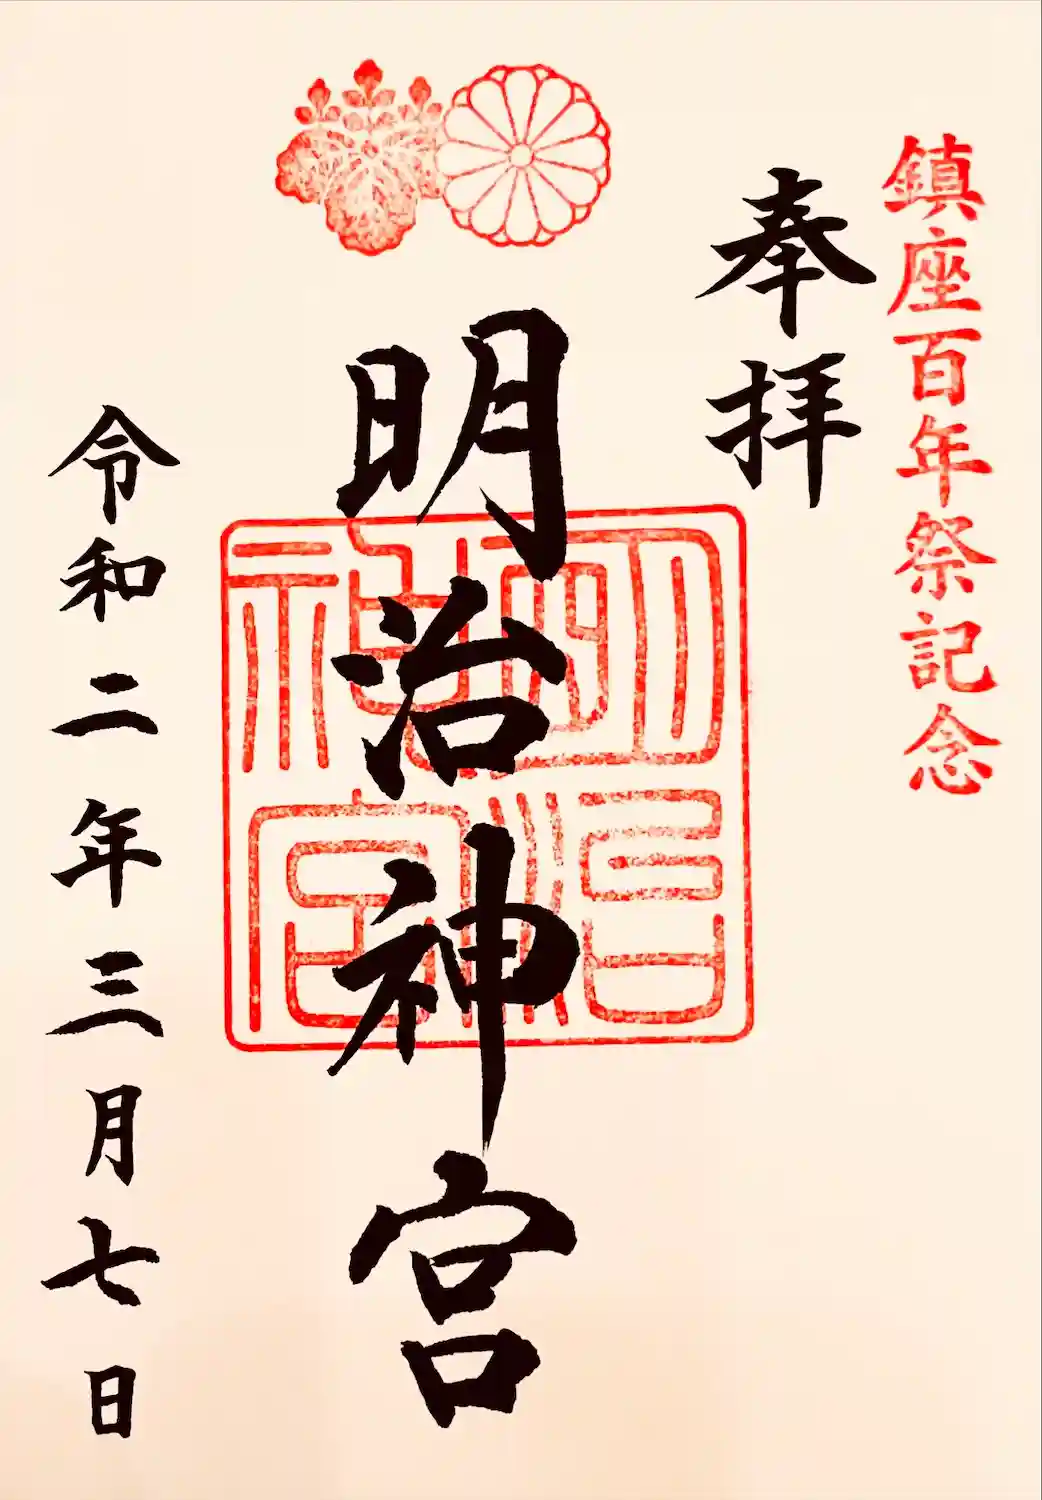 鎮座百年祭記念
奉拝
明治神宮
明治神宮
令和二年三月七日